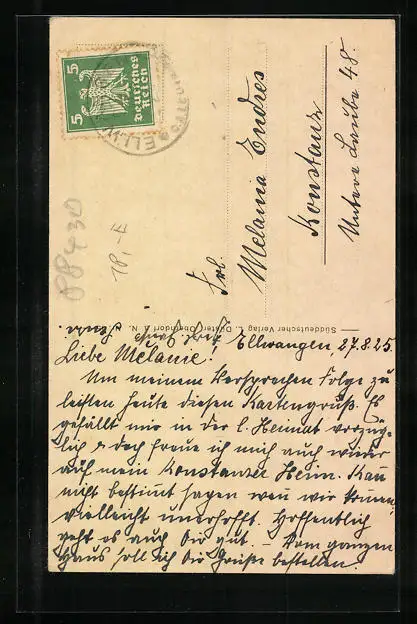 5 5
Deutsches
Reich
ELLW
88430
18,-E
Frl.
Melania Endres
Konstanz
Untere Laube 48.
Süddeutscher Verlag L. Oberndorf a. N.
Ellwangen, 27.8.25.
Liebe Melanie!
Um meinem Versprochen Folge zu
leisten heute diesen Kartengruß. Es
gefällt mir in der l. Heimat vorzüg-
lich & doch freue ich mich auch wieder
auf mein Konstanzer Heim. Kan
nicht bestimt sagen wen wir kommen
vielleicht unverhofft. Hoffentlich
geht es auch Dir gut. – Vom ganzen
Haus soll ich Dir Grüße bestellen.